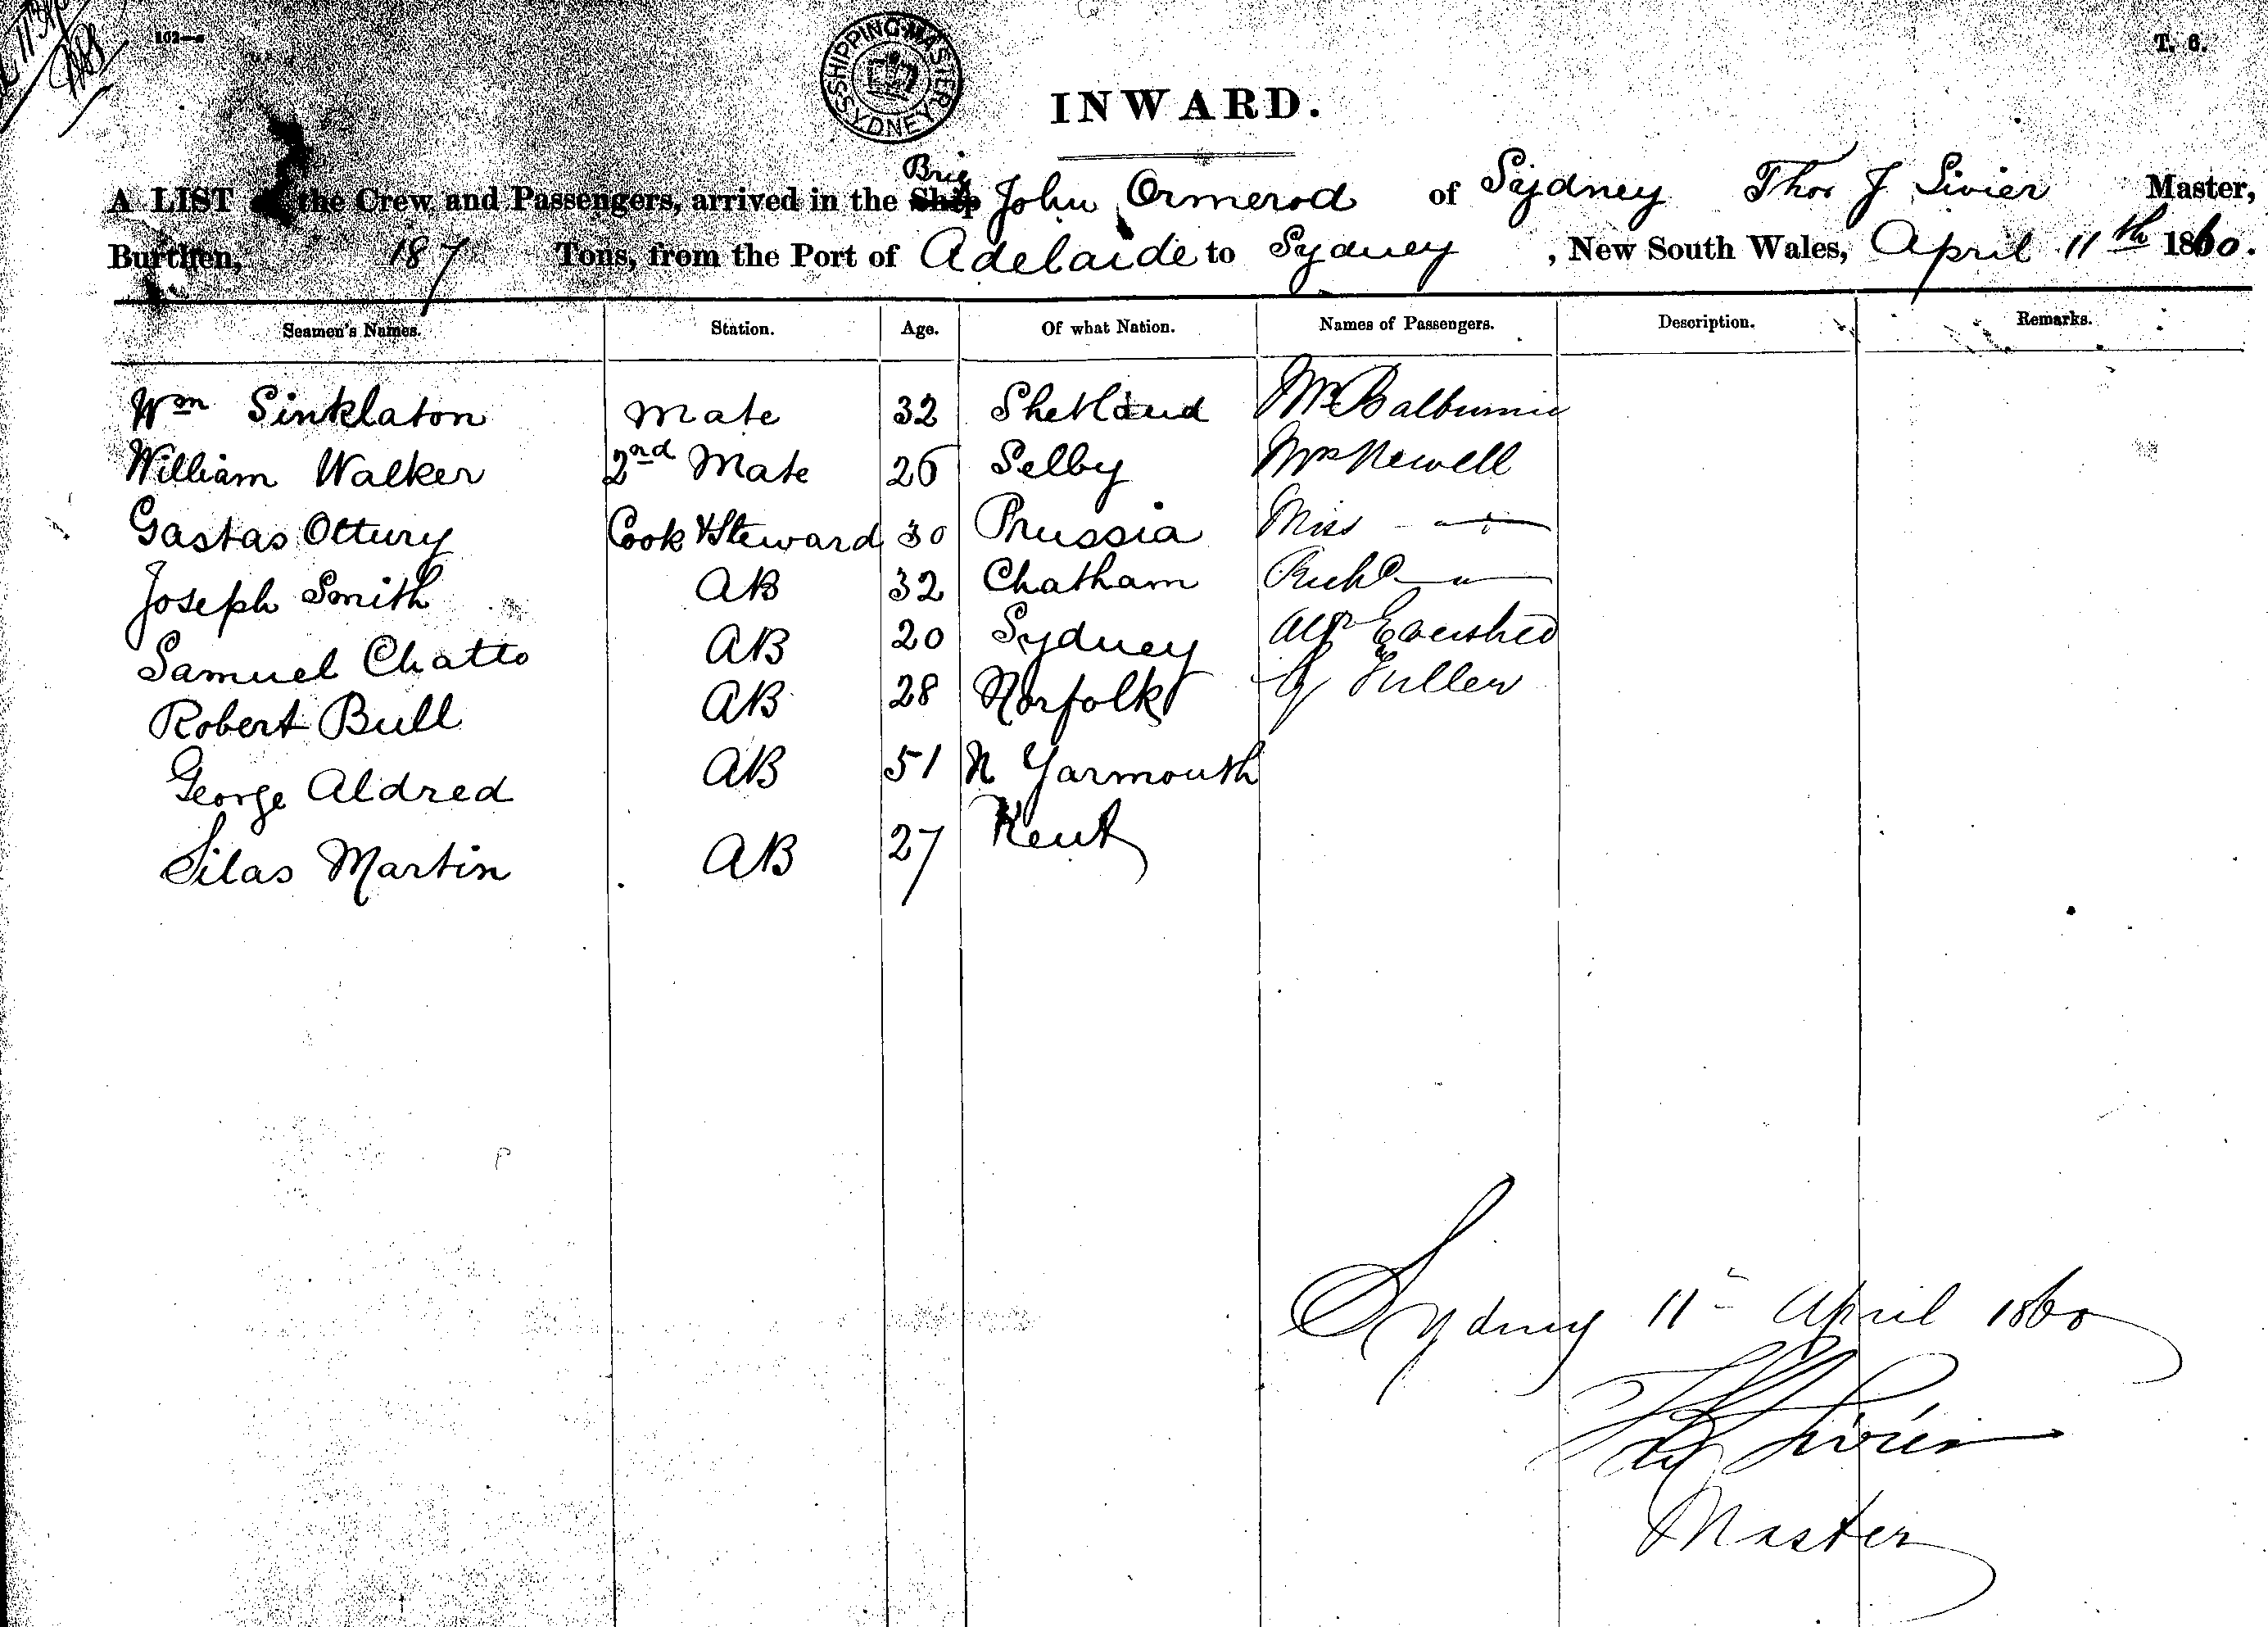 102—a
T. 6.
SHIPPING MASTER SYDNEY
INWARD.
Brig
A LIST the Crew and Passengers, arrived in the Ship John Ormerod of Sydney Thos J Sivier Master,
Burthen, 187 Tons, from the Port of Adelaide to Sydney, New South Wales, April 11th 1860.
Seamen's Names. Station. Age. Of what Nation. Names of Passengers. Description. Remarks.
Wm Sinklaton Mate 32 Shetland Mr Balbirnie
William Walker 2nd Mate 26 Selby Mrs Newell
Gastas Ottury Cook & Steward 30 Prussia Miss — " —
Joseph Smith AB 32 Chatham Richd — " —
Samuel Chatto AB 20 Sydney Alfd Evershed
Robert Bull AB 28 Norfolk Fuller
George Aldred AB 51 N Yarmouth
Silas Martin AB 27 Kent
Sydney 11th April 1860
Sivier
Master